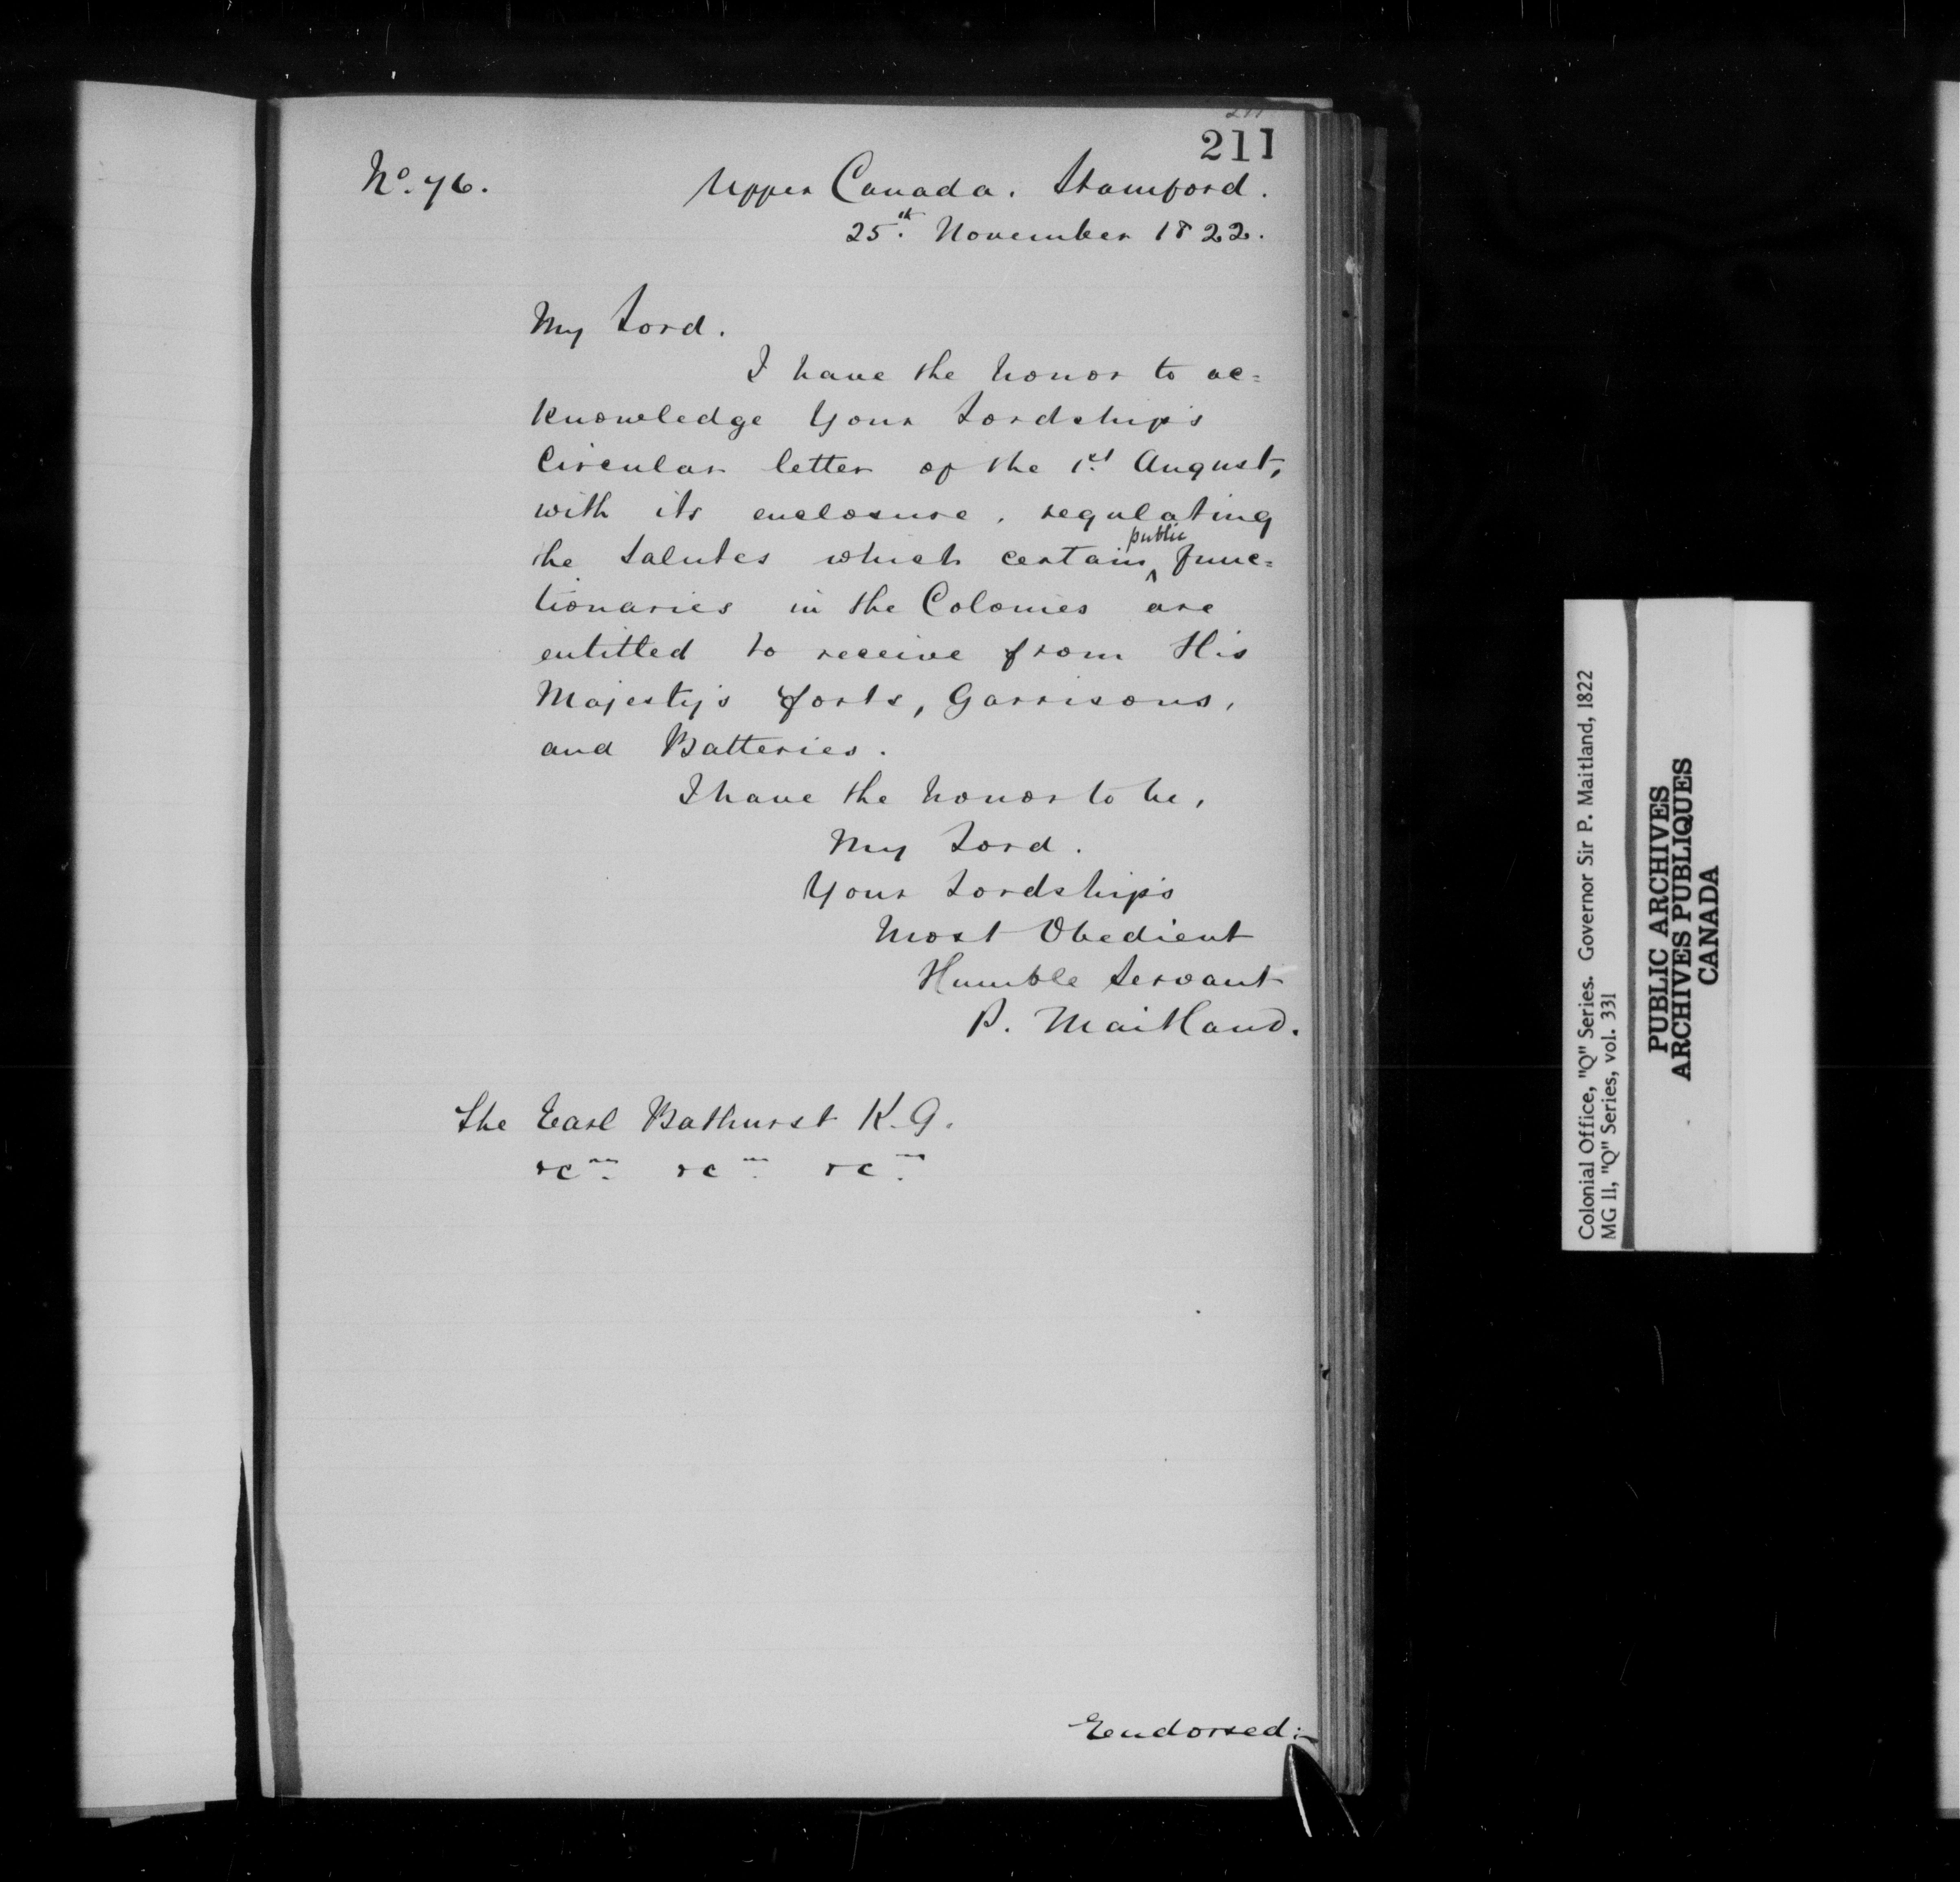 211
No. 76.
Upper Canada. Stamford.
25th. November 1822.
My Lord.
I have the honor to ac=
knowledge Your Lordship's
Circular letter of the 1st. August,
with its enclosure, regulating
the Salutes which certain ^public func=
tionaries in the Colonies are
entitled to receive from His
Majesty's Forts, Garrisons,
and Batteries.
I have the honor to be,
My Lord.
Your Lordship's
Most Obedient
Humble Servant
P. Maitland.
The Earl Bathurst K.G.
&c &c &c
Endorsed:-
Colonial Office, "Q" Series. Governor Sir P. Maitland, 1822
MG 11, "Q" Series, vol. 331
PUBLIC ARCHIVES
ARCHIVES PUBLIQUES
CANADA